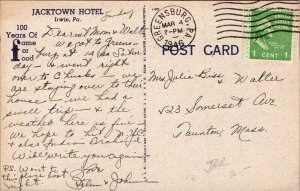 JACKTOWN HOTEL
Irwin, Pa.
100
Years Of
Fame
or
Food
Sunday
Dearest Mom & Walter
We got to Greens-
burg at
day - & went right
over to
are staying over to their
house - we had a
swell trip - & the
weather here is fine
We hope to hit N.Y.C.
& also Indian
Will write you again
Love
Helen & Johnnie
P.S. Went to
this place last
night.
GREENSBURG, PA.
MAR 4
1-PM
1946
1 CENT 1
POST CARD
Mrs Julia Bisi & Walter
523 Somerset Ave.
Taunton, Mass.
2-